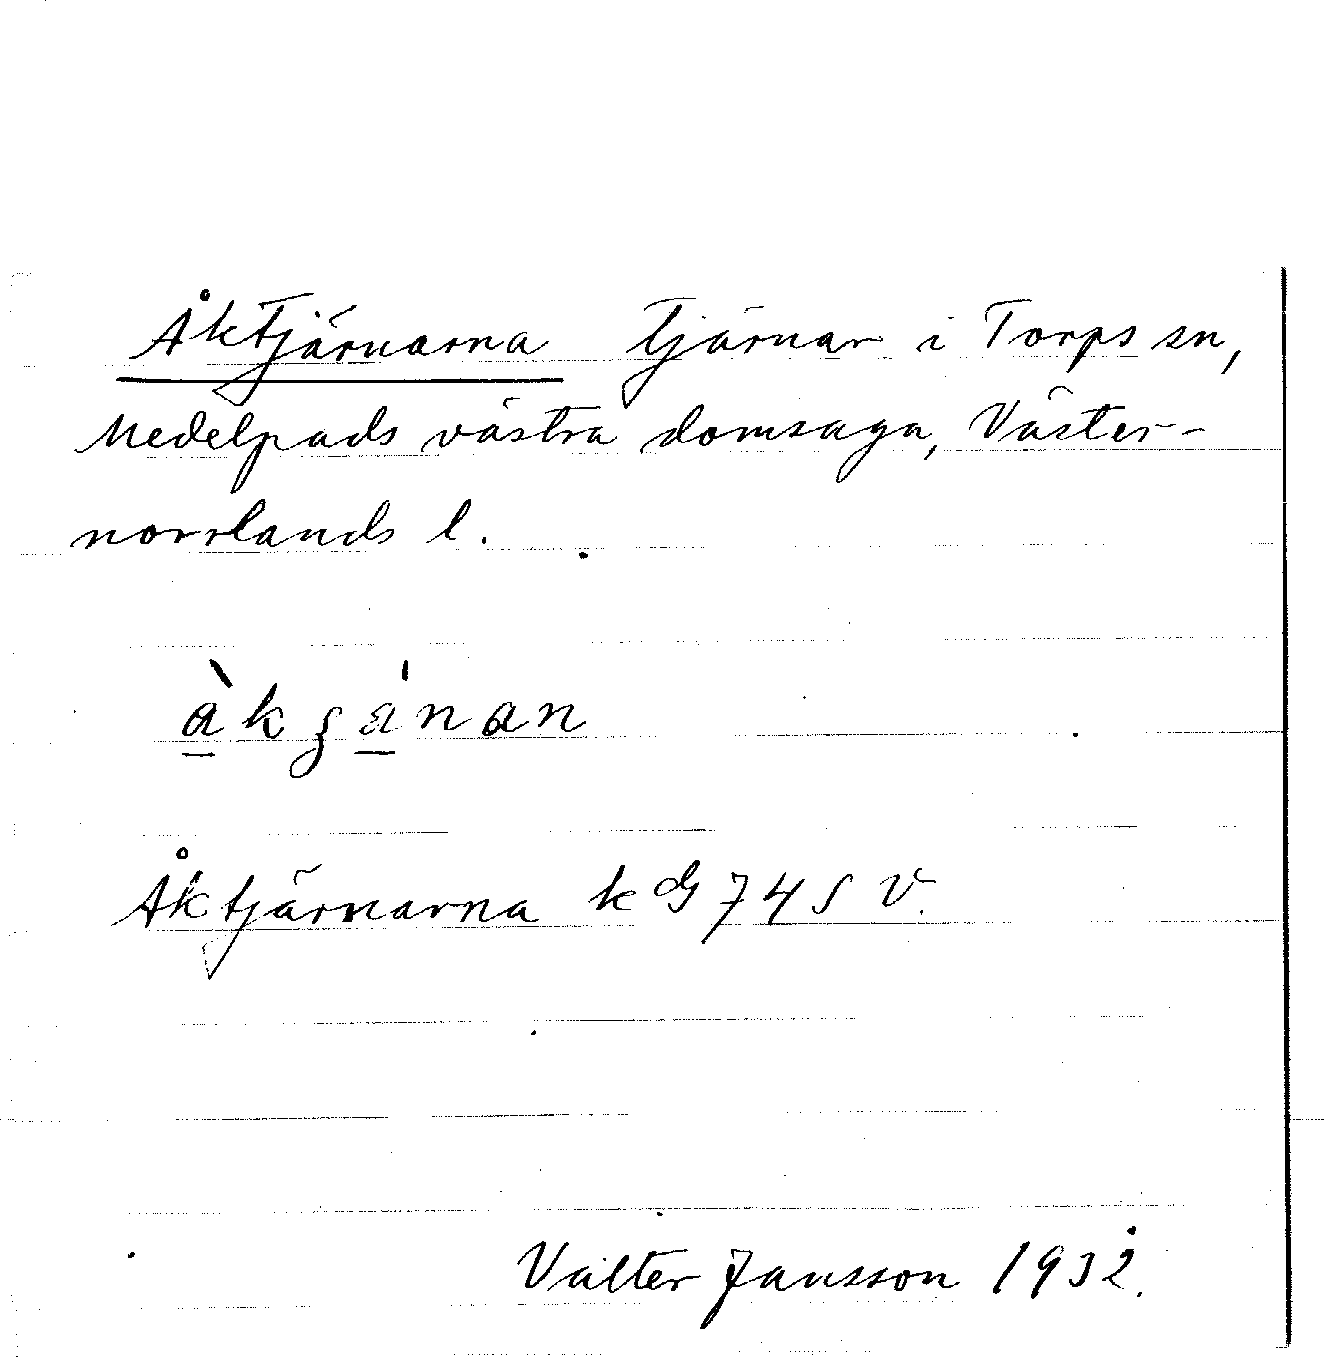 Åktjärnarna Tjärnar i Torps sn,
Medelpads västra domsaga, Väster-
norrlands l.
Åktjärnarna
Valter Jansson 1932.